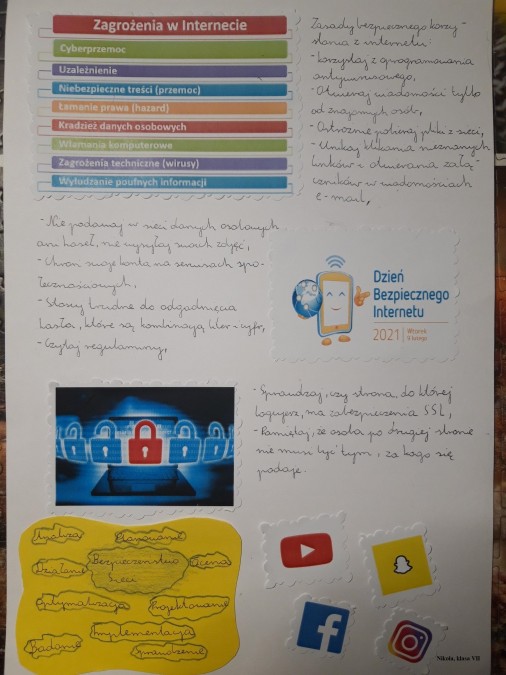 Zagrożenia w Internecie
Cyberprzemoc
Uzależnienie
Niebezpieczne treści (przemoc)
Łamanie prawa (hazard)
Kradzież danych osobowych
Włamania komputerowe
Zagrożenia techniczne (wirusy)
Wyłudzanie poufnych informacji
Zasady bezpiecznego korzy-
stania z internetu:
- korzystaj z oprogramowania
antywirusowego,
- Otwieraj wiadomości tylko
od znajomych osób,
- Ostrożnie pobieraj pliki z sieci,
- Unikaj klikania nieznanych
linków i otwierania załą-
czników w wiadomościach
e-mail,
- Nie podawaj w sieci danych osobowych
ani haseł, nie wysyłaj swoich zdjęć,
- Chroń swoje konta na serwisach spo-
łecznościowych,
- Stosuj trudne do odgadnięcia
hasła, które są kombinacją liter i cyfr,
- Czytaj regulaminy,
Dzień
Bezpiecznego
Internetu
2021 Wtorek
9 lutego
- Sprawdzaj, czy strona, do której
logujesz, ma zabezpieczenia SSL,
- Pamiętaj, że osoba po drugiej stronie
nie musi być tym, za kogo się
podaje.
Analiza
Planowanie
Działanie
Bezpieczeństwo
Sieci
Ocena
Optymalizacja
Projektowanie
Implementacja
Badanie
Sprawdzenie
Nikola, klasa VII